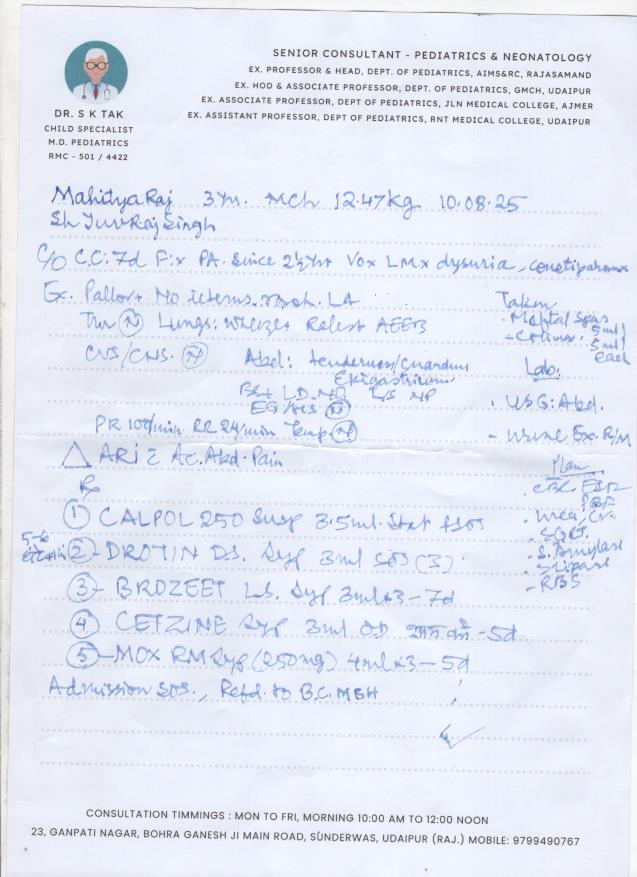 SENIOR CONSULTANT - PEDIATRICS & NEONATOLOGY
EX. PROFESSOR & HEAD, DEPT. OF PEDIATRICS, AIMS&RC, RAJASAMAND
EX. HOD & ASSOCIATE PROFESSOR, DEPT. OF PEDIATRICS, GMCH, UDAIPUR
EX. ASSOCIATE PROFESSOR, DEPT OF PEDIATRICS, JLN MEDICAL COLLEGE, AJMER
EX. ASSISTANT PROFESSOR, DEPT OF PEDIATRICS, RNT MEDICAL COLLEGE, UDAIPUR
DR. S K TAK
CHILD SPECIALIST
M.D. PEDIATRICS
RMC - 501 / 4422
Mahitya Raj 3Yr. MCh 12.47kg 10.08.25
Sh Yuv Raj Singh
C/O C.C. 7d F:x PA. Since 2½Yr Vox LMx dysuria,
Ex. Pallor+ No icterus. LA
(N) Lungs: Wheeze+ AEEB
CVS/CNS. (N) Abd: tenderness/Guarding
Epigastrium
BS+ L.S. NP
(N)
PR 100/min RR 24/min Temp. (N)
△ ARI c̄ Ac. Abd. Pain
Taken
5ml
5ml
each
Lab.
USG: Abd.
- Urine Ex. R/M
Plan
CBC. ESR
PBF
Urea, Cr.
- SGPT.
- S. Amylase
- Slipase
- RBS
Rx
① CALPOL 250 Susp 3.5ml. Stat & SOS
② - DROTIN DS. Syp 3ml SOS (3)
③ - BROZEET LS. Syp 3ml x 3 - 7d
④ CETZINE Syp 3ml OD शाम को - 5d
⑤ - MOX RM Syp (250mg) 4ml x 3 - 5d
Admission SOS., Refd. to B.C. MBH
CONSULTATION TIMMINGS : MON TO FRI, MORNING 10:00 AM TO 12:00 NOON
23, GANPATI NAGAR, BOHRA GANESH JI MAIN ROAD, SUNDERWAS, UDAIPUR (RAJ.) MOBILE: 9799490767